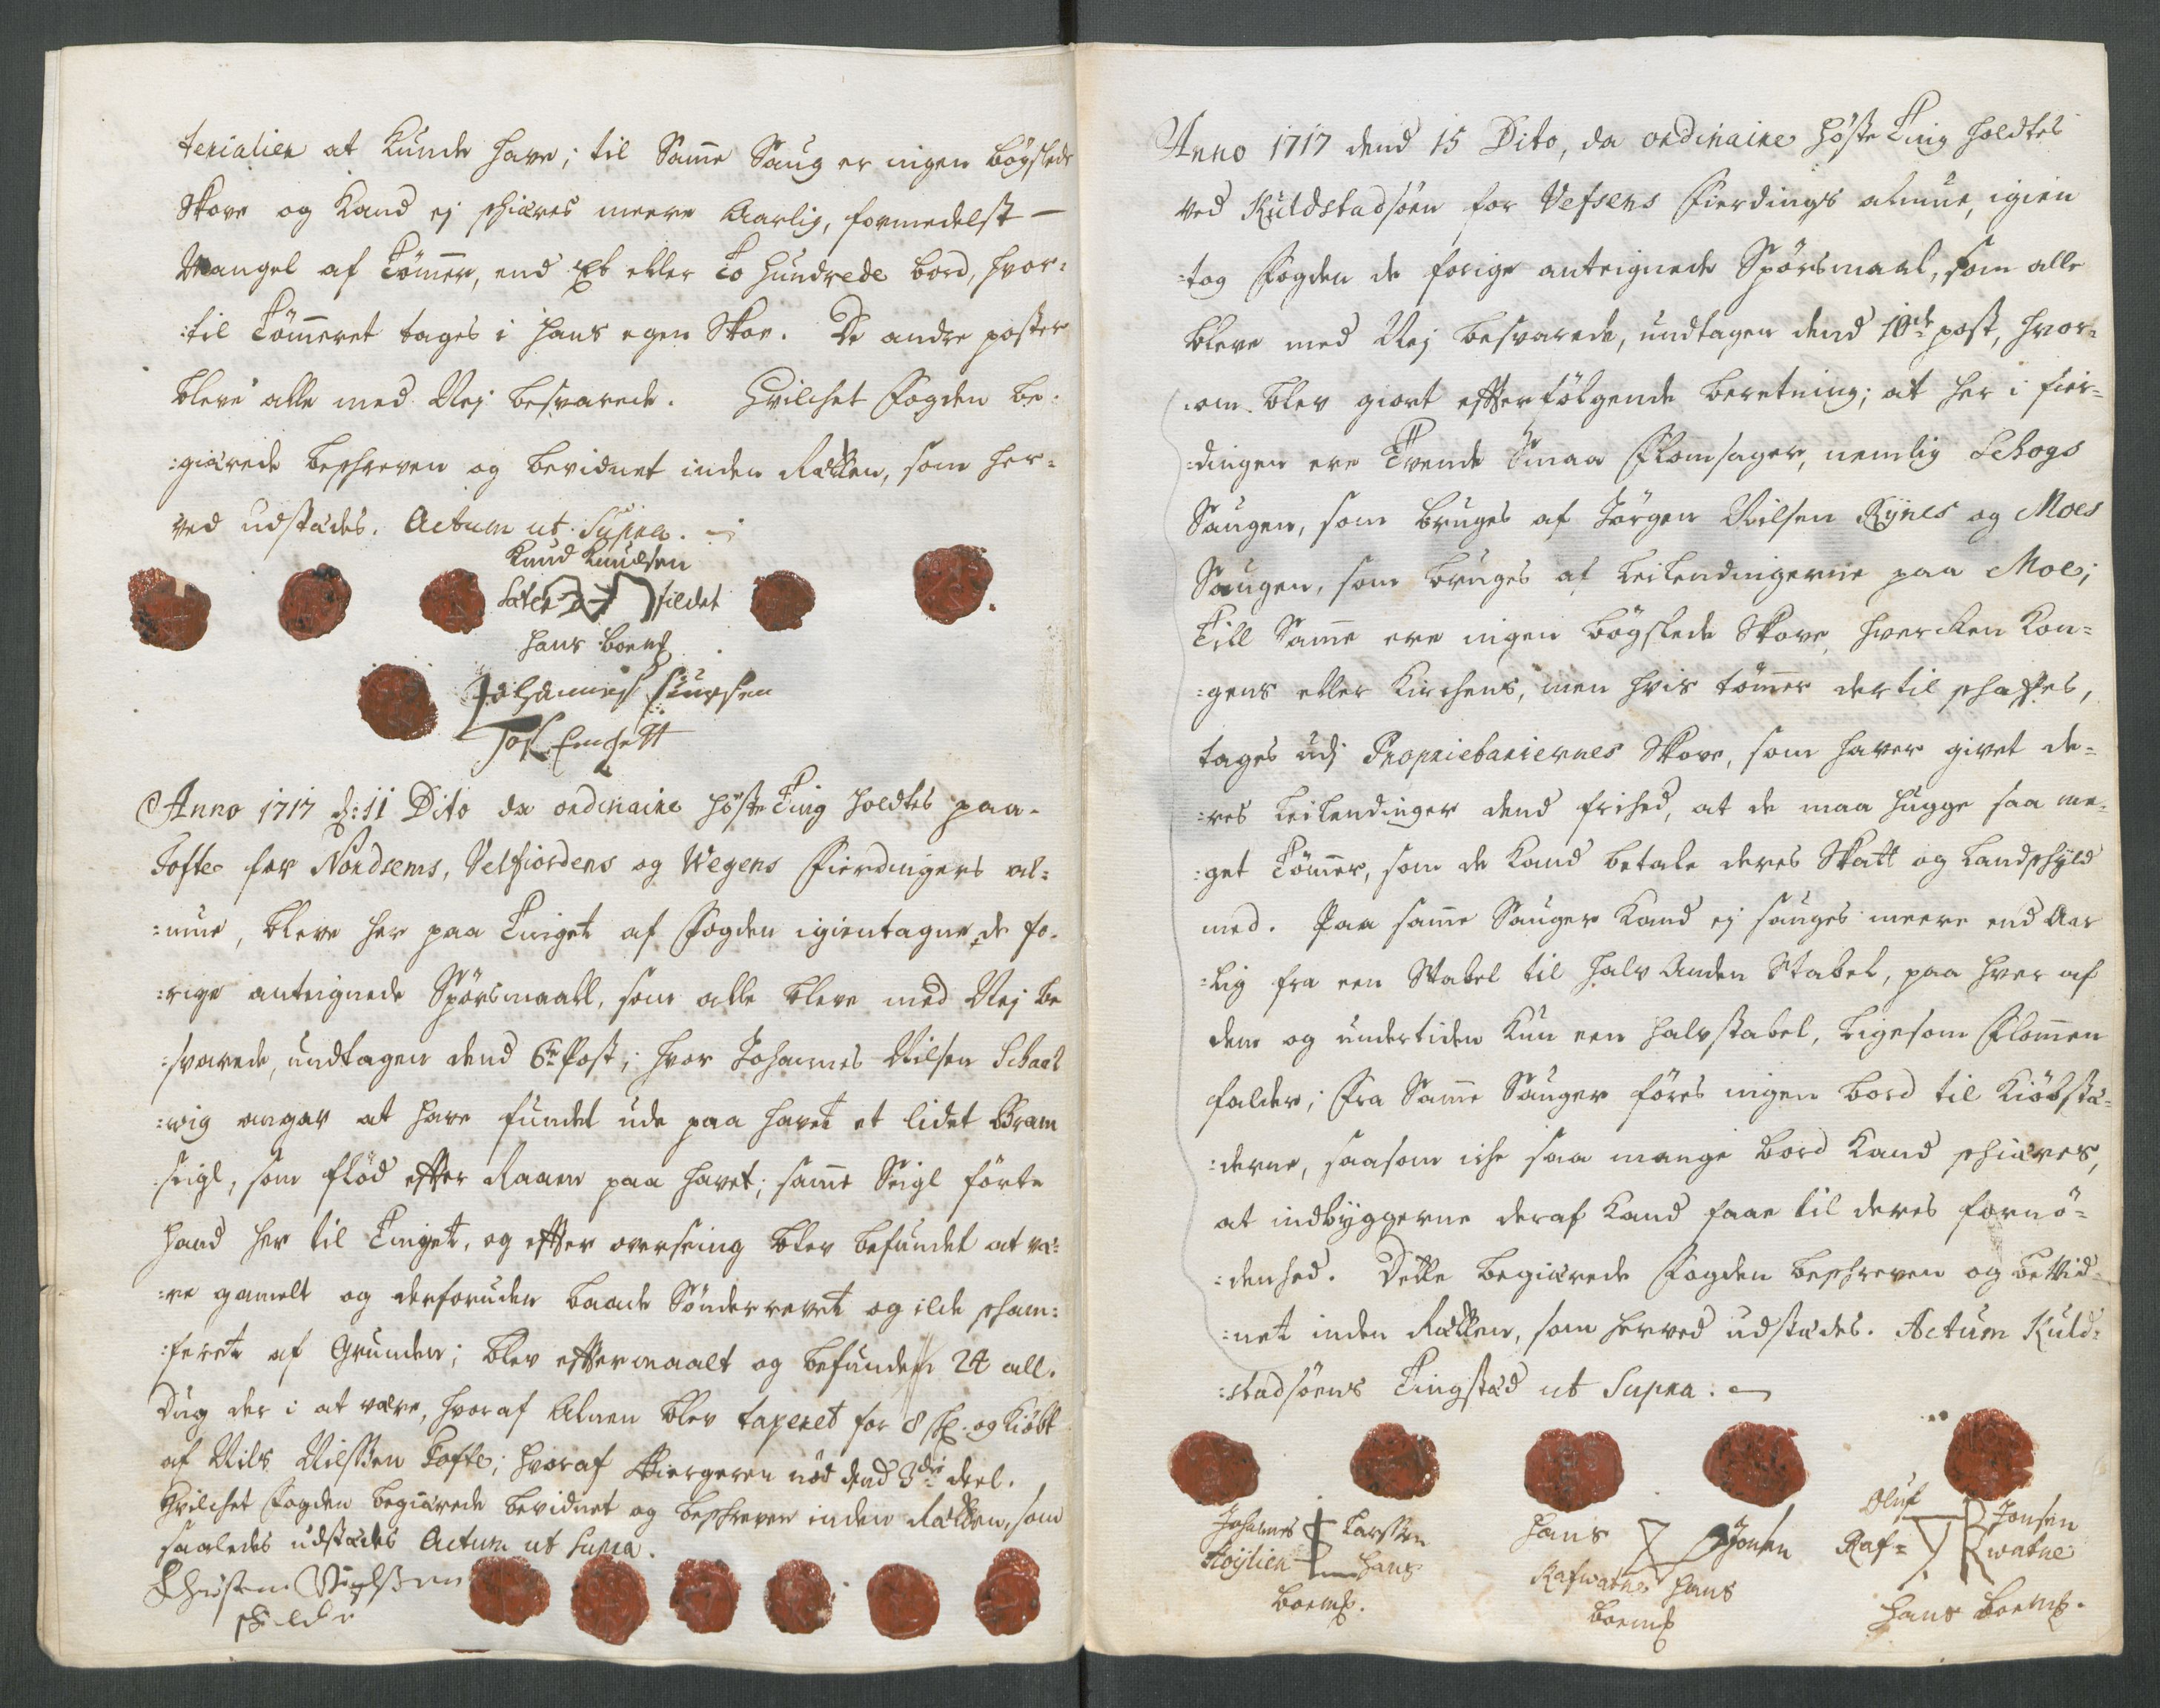 terialier at kunde have; til Samme Saug er ingen bögslede
Skove og kand ej skiæres meere Aarlig, formedelst —
Mangel af Tömmer, end Et eller To hundrede bord, hvor=
:til Tömmeret tages i hans egen Skov. De andre poster
bleve alle med Nej besvarede. Hvilchet Fogden be=
:giærede beskreven og bevidnet inden Rætten, som her=
ved udstædes. Actum ut Supra.
Knud Knudsen
fildet
hans boemk
Johannes Siursen
Anno 1717 d: 11 Dito da ordinaire Höste Ting holdtes paa
Tofte for Nordsems, Velfiordens og Wegens Fierdingers al=
:mue, bleve her paa Tinget af Fogden igientagne de fo=
:rige anteignede Spörsmaall, som alle bleve med Nej be
:svarede, undtagen dend 6te Post; hvor Johannes Nilsen Schaal
:wig angav at have fundet ude paa havet et lidet Bram
seigl, som flöd efter Raaen paa havet; samme Seigl förte
hand her til Tinget, og efter overseing blev befundet at væ=
:re gamelt og derforuden baade Sönderrevet og ilde scham=
:feret af Grunden; blev eftermaalt og befunden 24 all.
Dug der i at være, hvoraf Alnen blev taxeret for 8 sk. og kiöbt
af Nils Nilssen Tofte; hvoraf Biergeren nöd dend 3die deel.
Hvilchet Fogden begiærede bevidnet og beskreven inden Rætten, som
saaledes udstædes Actum ut Supra.
Anno 1717 dend 15 Dito, da ordinaire Höste Ting holdtes
ved Kuldstadsöen for Vefsens Fierdings almue, igien
:tog Fogden de forige anteignede Spörsmaal, som alle
bleve med Nej besvarede, undtagen dend 10de post, hvor=
:om blev giort efterfölgende beretning; at her i fier=
:dingen ere Tvende Smaa Flomsager, nemlig Schogs
Saugen, som bruges af Jörgen Nilsen Rynes og Moes
Saugen, som bruges af Leilendingerne paa Moe;
Till Samme ere ingen bögslede Skove, hvercken Kon=
:gens eller Kirchens, men hvis tömmer dertil skaffes,
tages udj Proprietariernes Skove, som haver givet de=
:res Leilendinger dend frihed, at de maa hugge saa me=
:get Tömmer, som de kand betale deres Skatt og Landskyld
med. Paa samme Sauger kand ej sauges meere end Aar
:lig fra een Stabel til halv Anden Stabel, paa hver af
dem og undertiden kun een halvstabel, ligesom Flommen
falder; Fra Samme Sauger föres ingen bord til Kiöbstæ=
:derne, saasom iche saa mange bord kand skiæres,
at indbyggerne deraf kand faae til deres fornö=
:denhed. Dette begiærede Fogden beskreven og bevid=
:net inden Rætten, som herved udstædes. Actum Kuld=
:stadsöens Tingstæd ut Supra.
Johannes Larssen
hans
boemk.
Hans Jonsen
Rafwatne hans
boemk
Oluf Jonsen
Raf= watne
hans boemk.